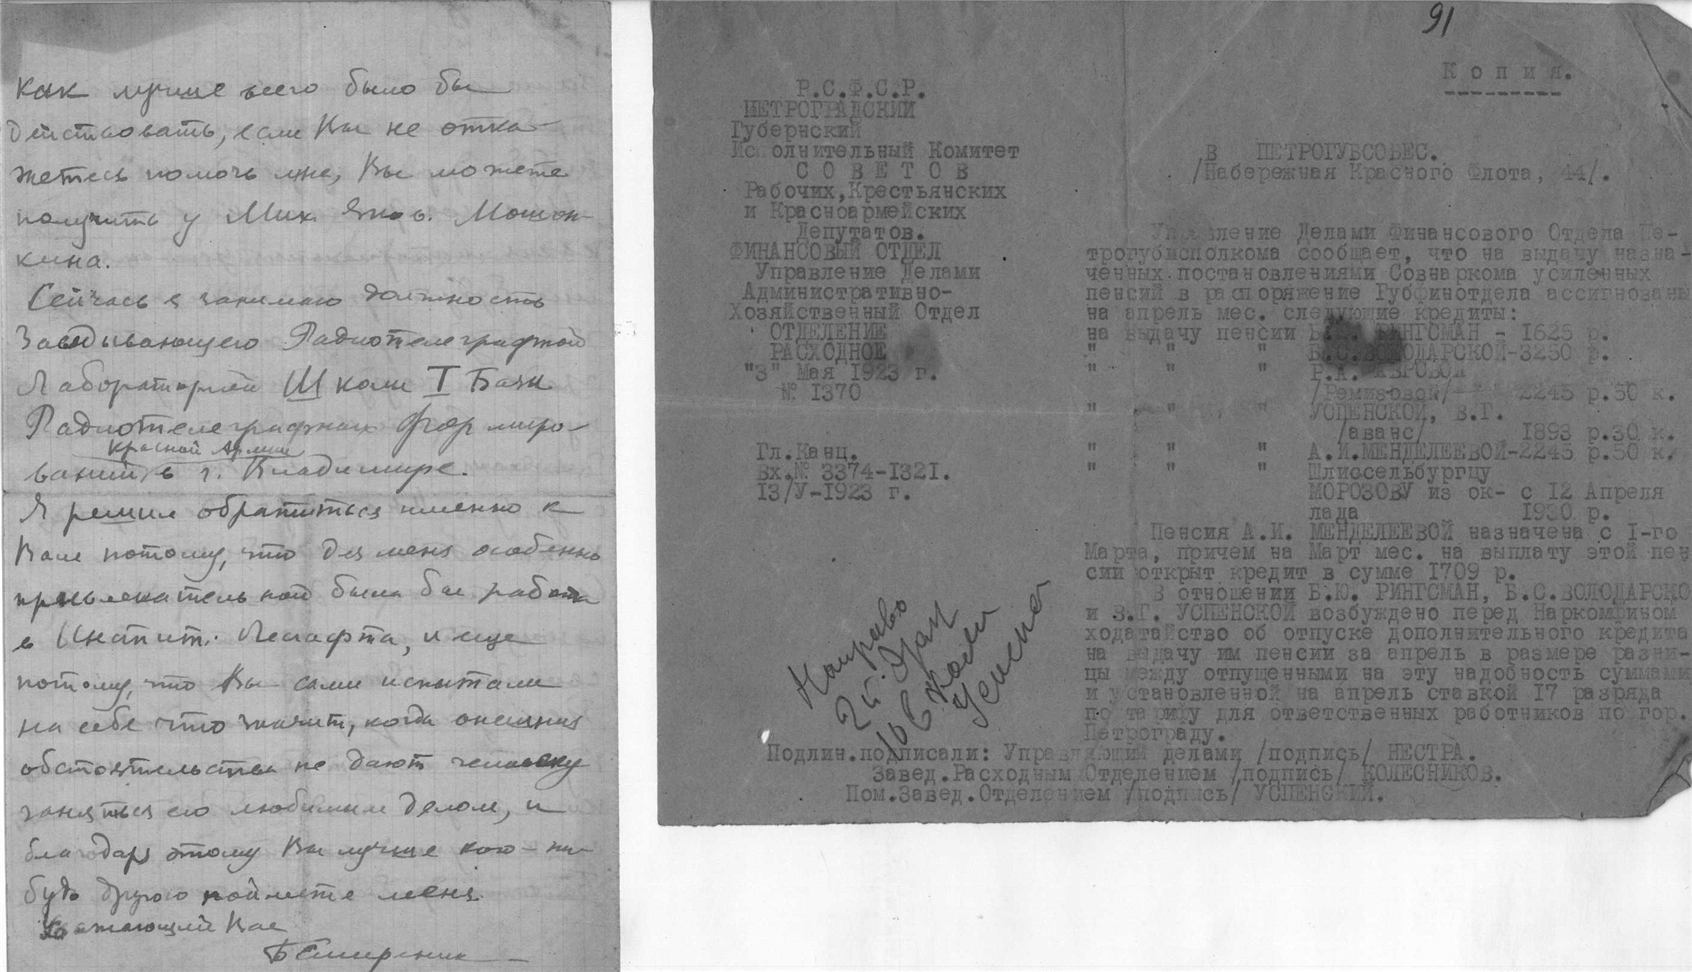 как лучше всего было бы
действовать, если Вы не отка-
жетесь помочь мне, Вы можете
получить у Мих. Яков. Мошон-
кина.
Сейчась я занимаю должность
Заведывающего Радиотелеграфной
Лабораторией Школы I Базы
Радиотелеграфных Форміро-
Красной Армии
ваний, в г. Владимире.
Я решил обратиться именно к
Вам потому, что для меня особенно
привлекательной была бы работа
в Инстит. Лесгафта, и еще
потому, что Вы сами испытали
на себе что значит, когда внешния
обстоятельства не дают человеку
заняться его любимым делом, и
благодаря этому Вы лучше кого-ни-
будь другого поймете меня.
Уважающий Вас
91
Копия.
Р.С.Ф.С.Р.
ПЕТРОГРАДСКИЙ
Губернский
Исполнительный Комитет
СОВЕТОВ
Рабочих,Крестьянских
и Красноармейских
Депутатов.
ФИНАНСОВЫЙ ОТДЕЛ
Управление Делами
Административно-
Хозяйственный Отдел
ОТДЕЛЕНИЕ
РАСХОДНОЕ
"3" Мая 1923 г.
№ 1370
Гл.Канц.
Вх.№ 3374-1321.
13/У-1923 г.
В ПЕТРОГУБСОБЕС.
/Набережная Красного Флота, 44/.
Управление Делами Финансового Отдела Пе-
трогубисполкома сообщает, что на выдачу назна-
ченных постановлениями Совнаркома усиленных
пенсий в распоряжение Губфинотдела ассигнованы
на апрель мес. следующие кредиты:
на выдачу пенсии Б.Ю. РИНГСМАН - 1625 р.
" " " Б.С.ВОЛОДАРСКОЙ-3250 р.
" " " Р.А.
/Ремизовой/- 2245 р.50 к.
" " " УСПЕНСКОЙ, В.Г.
/аванс/ 1893 р.30 к.
" " " А.И.МЕНДЕЛЕЕВОЙ-2245 р.50 к.
" " " Шлиссельбургцу
МОРОЗОВУ из ок- с 12 Апреля
лада 1930 р.
Пенсия А.И. МЕНДЕЛЕЕВОЙ назначена с I-го
Марта, причем на Март мес. на выплату этой пен
сии открыт кредит в сумме 1709 р.
В отношении Б.Ю. РИНГСМАН, Б.С.ВОЛОДАРСКО
и В.Г. УСПЕНСКОЙ возбуждено перед Наркомфином
ходатайство об отпуске дополнительного кредита
на выдачу им пенсии за апрель в размере разни-
цы между отпущенными на эту надобность суммами
и установленной на апрель ставкой 17 разряда
по тарифу для ответственных работников по гор.
Петрограду.
Подлин.подписали: Управляющий делами /подпись/ НЕСТРА.
Завед.Расходным Отделением /подпись/ КОЛЕСНИКОВ.
Пом.Завед.Отделением /подпись/ УСПЕНСКИЙ.